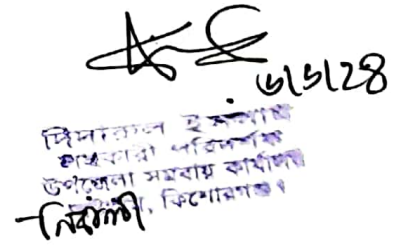 ৬/৬/২৪
দিদারুল ইসলাম
সহকারী পরিদর্শক
উপজেলা সমবায় কার্যালয়
নিকলী, কিশোরগঞ্জ।